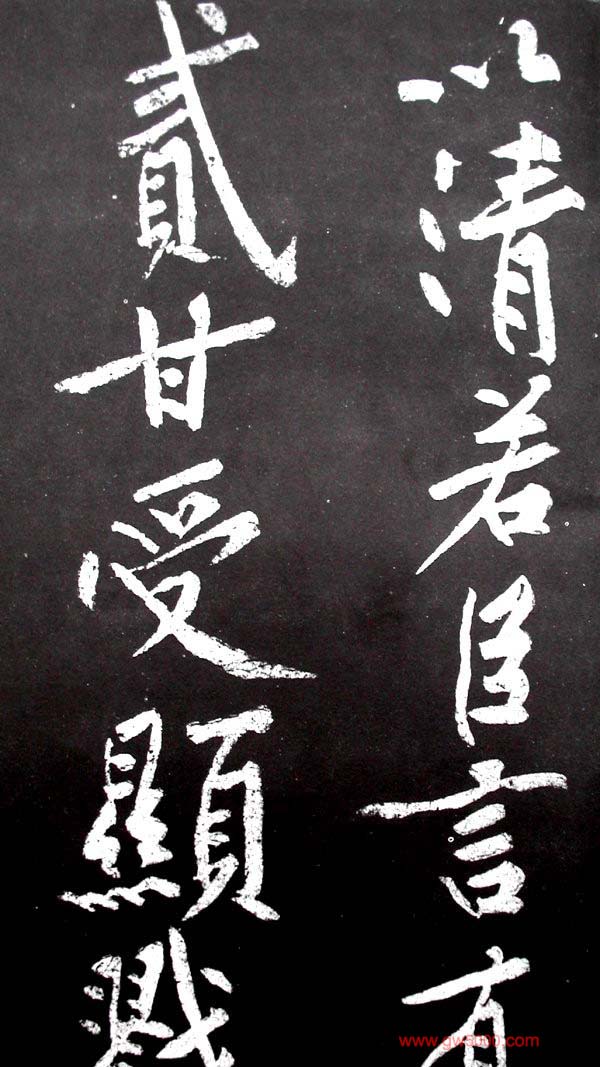 以清若臣言有
貳甘受顯戮
www.gw3000.com